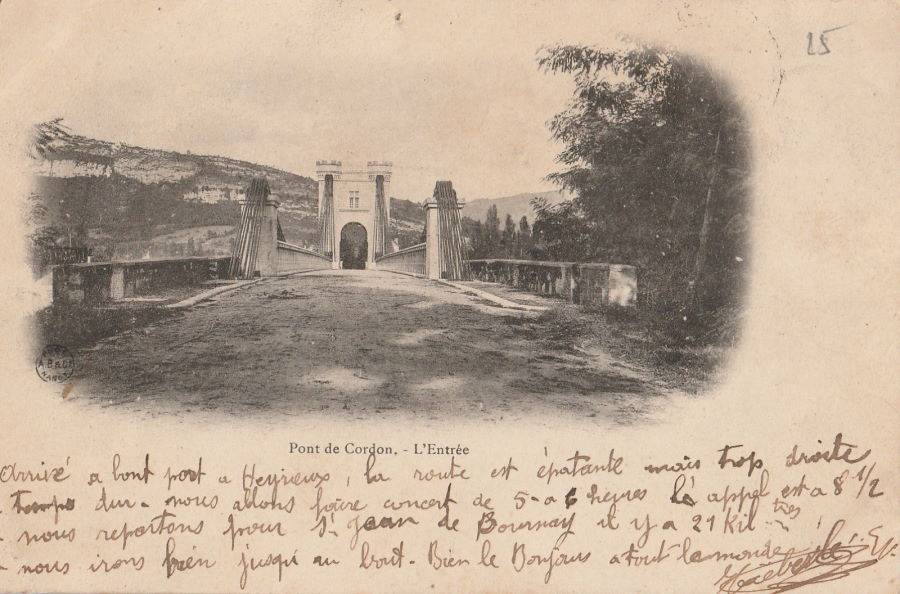 25
Pont de Cordon. - L'Entrée
Arrivé a bont port a Heyrieux, la route est épatante mais trop droite
temps dur - nous allons faire concert de 5 à 6 heures l'appel est a 8 1/2
nous repartons pour St Jean de Bournay il y a 21 Kil très
nous irons bien jusqu'au bout. Bien le Bonjour a tout le monde